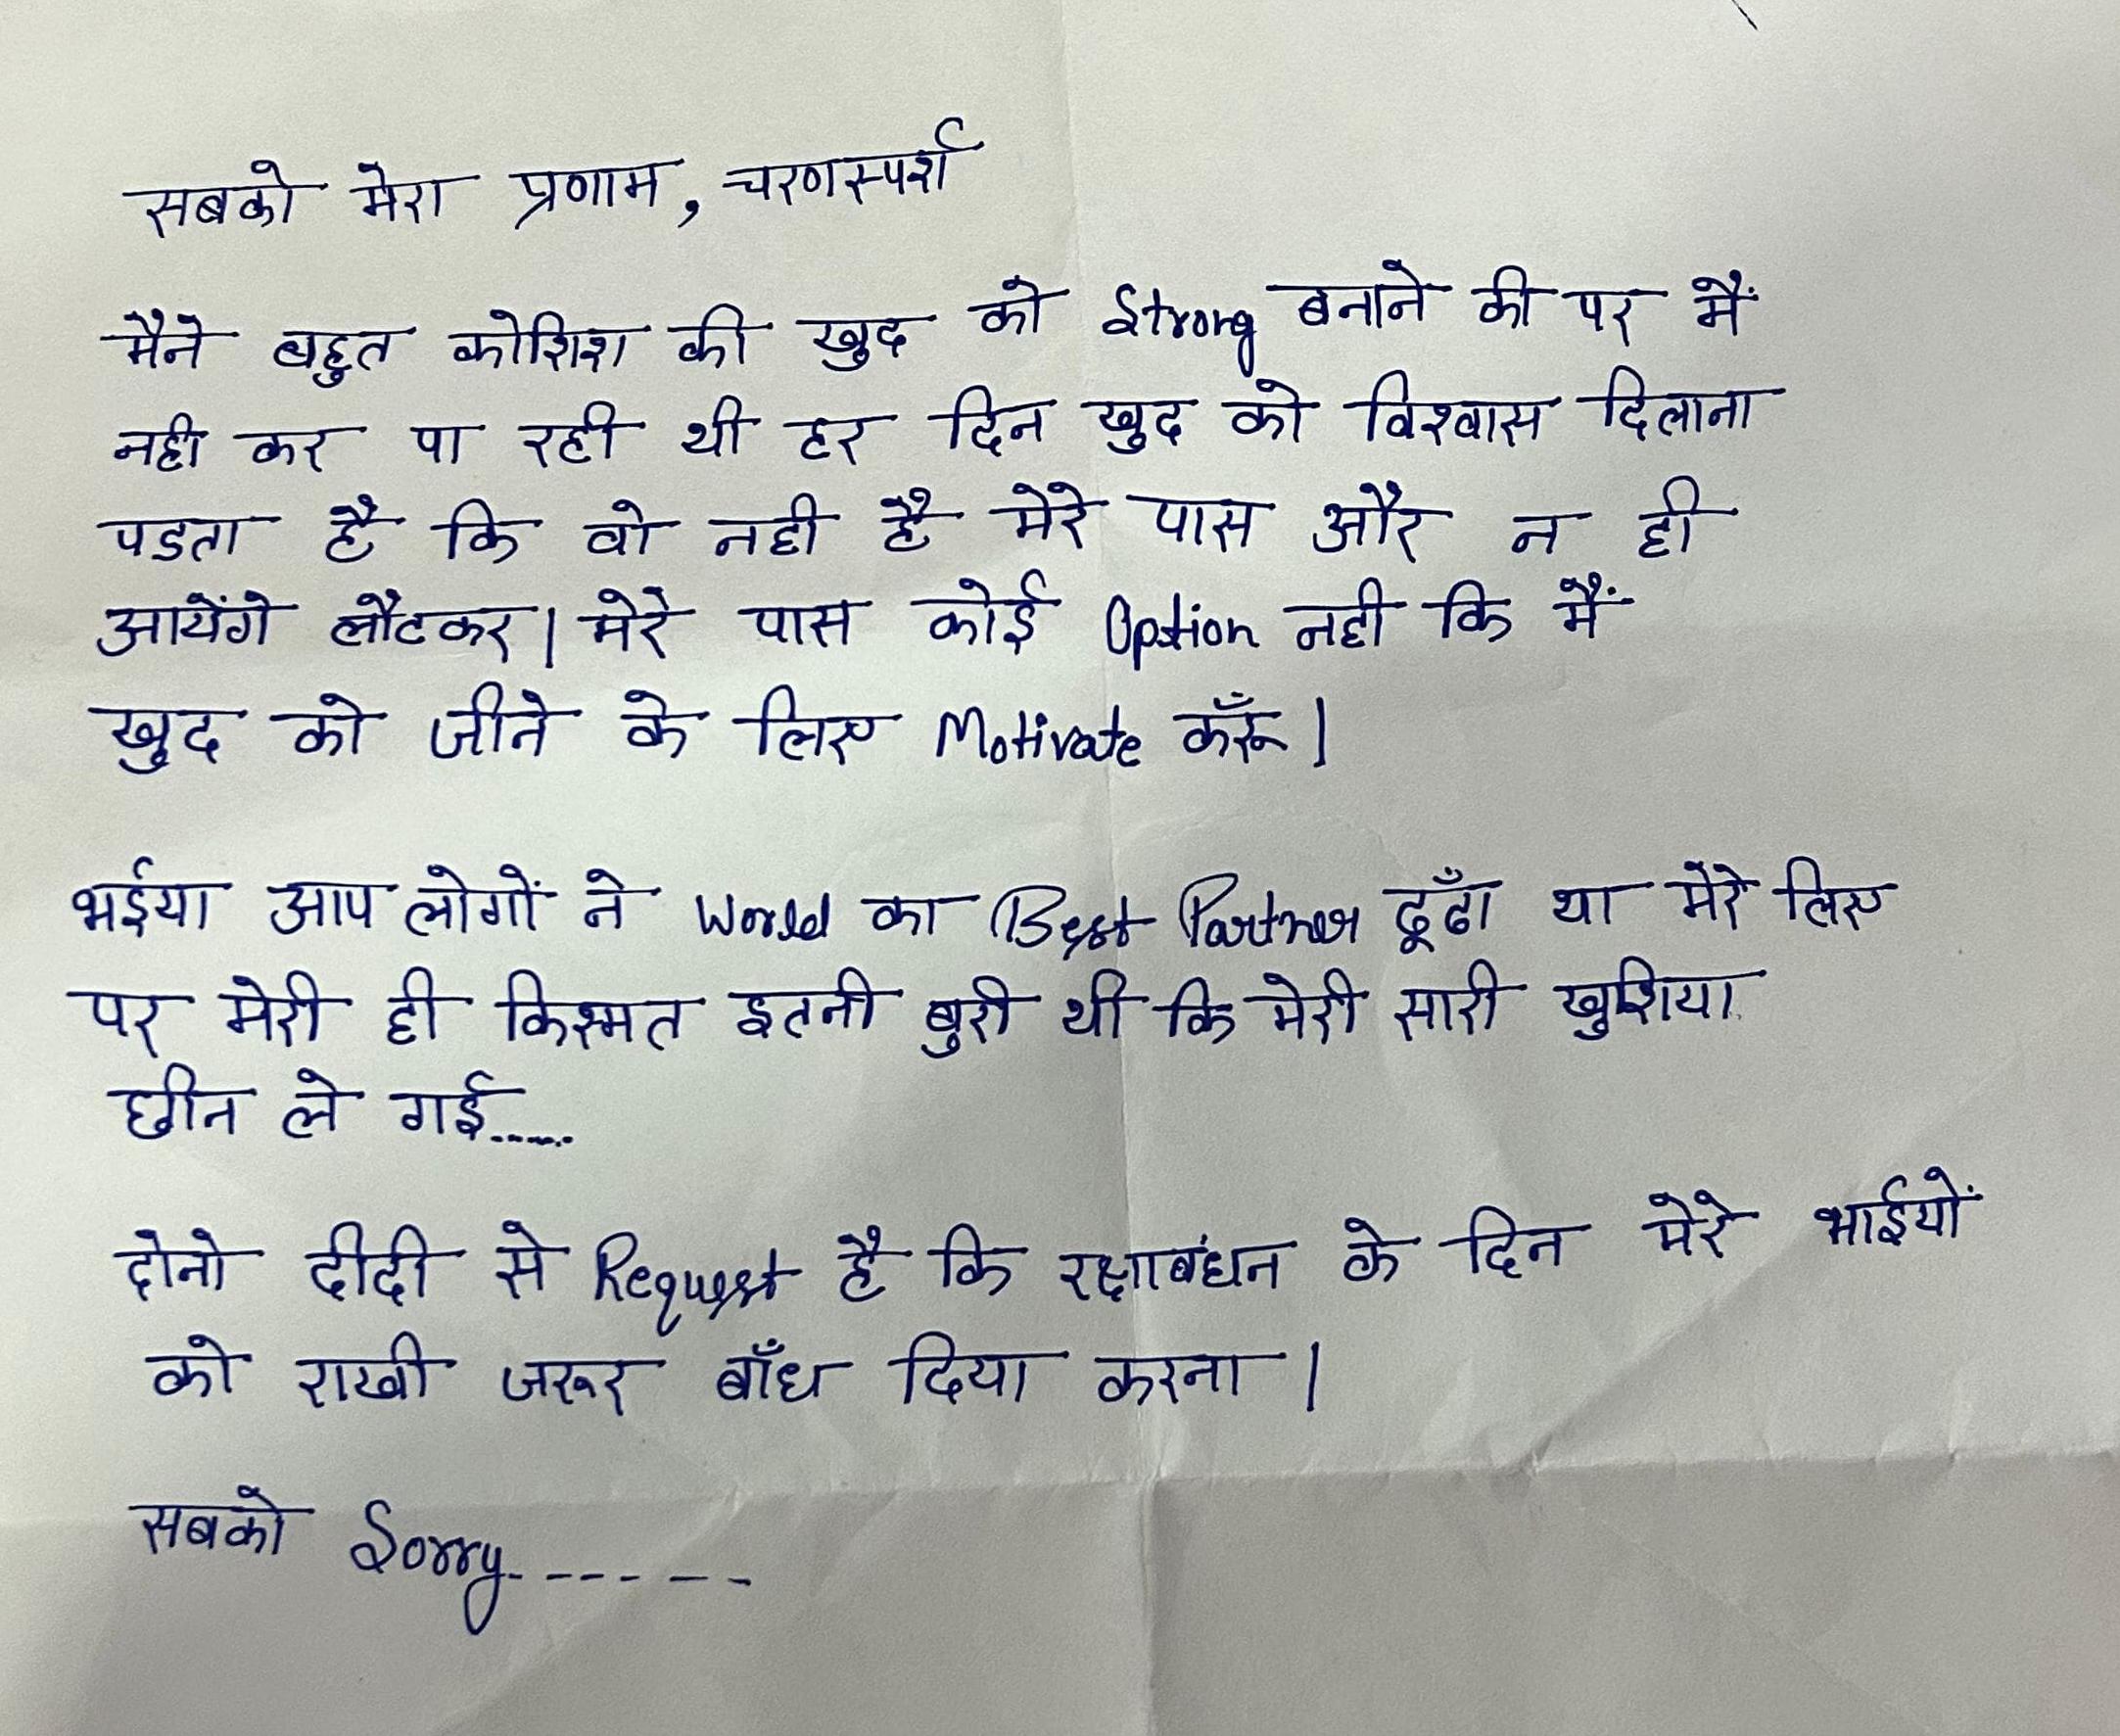 सबको मेरा प्रणाम, चरणस्पर्श
मैने बहुत कोशिश की खुद को Strong बनाने की पर मैं
नही कर पा रही थी हर दिन खुद को विश्वास दिलाना
पडता है कि वो नही है मेरे पास और न ही
आयेंगे लौटकर। मेरे पास कोई Option नही कि मैं
खुद को जीने के लिए Motivate करूँ।
भईया आप लोगों ने World का Best Partner ढूँढा था मेरे लिए
पर मेरी ही किस्मत इतनी बुरी थी कि मेरी सारी खुशिया
छीन ले गई......
दोनो दीदी से Request है कि रक्षाबंधन के दिन मेरे भाईयों
को राखी जरूर बाँध दिया करना।
सबको Sorry------